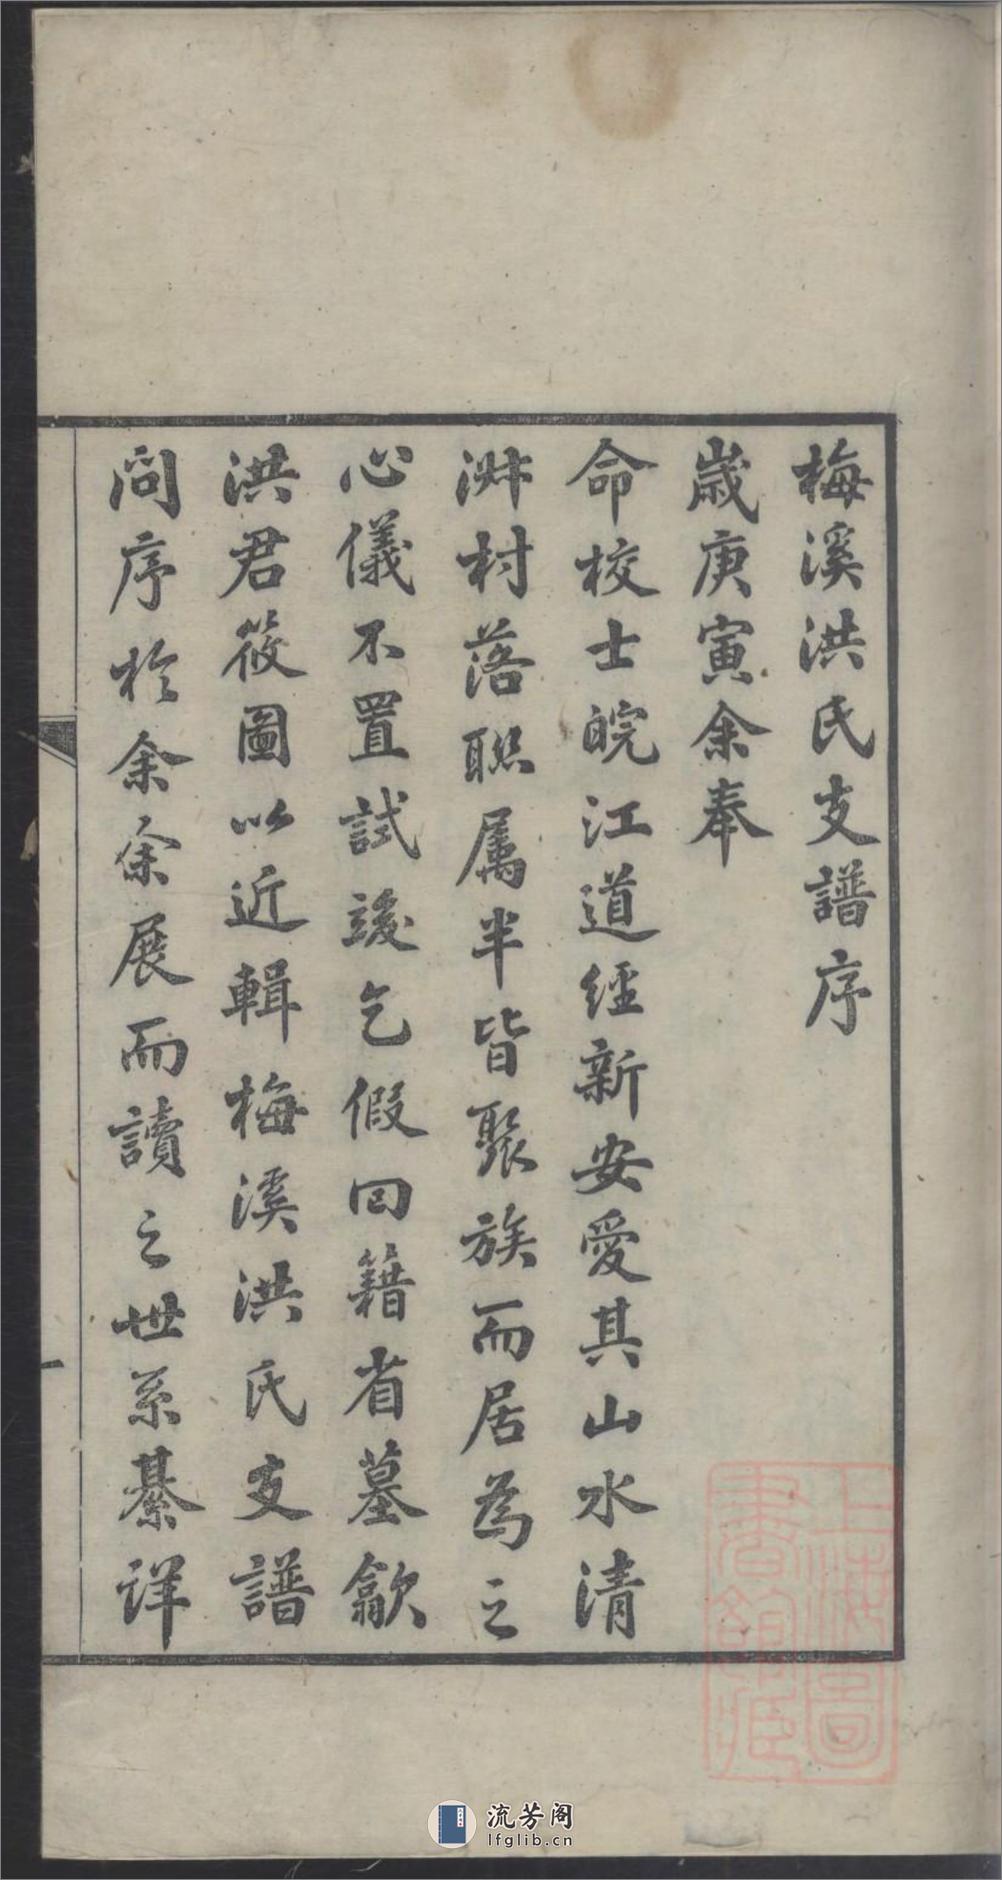 梅溪洪氏支譜序
歲庚寅余奉
命校士皖江道經新安愛其山水清
淑村落聯屬半皆聚族而居為之
心儀不置試竣乞假回籍省墓歙
洪君筱圖以近輯梅溪洪氏支譜
問序於余余展而讀之世系綦詳
一
上海圖書館藏
流芳阁
lfglib.cn